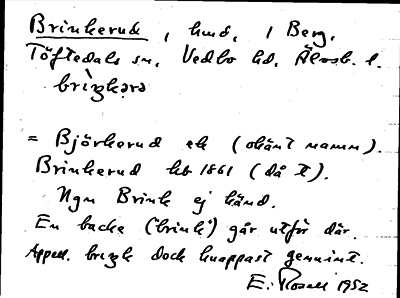 Brinkerud, hmd, 1 Berg,
Töftedals sn, Vedbo hd, Älvsb. l.
brìŋkərə
= Björkerud ek (okänt namn).
Brinkerud hb 1861 (då t).
Ngn Brink ej känd.
En backe ("brink") går utför där.
Appell. brıŋk dock knappast genuint.
E. Rosell 1952